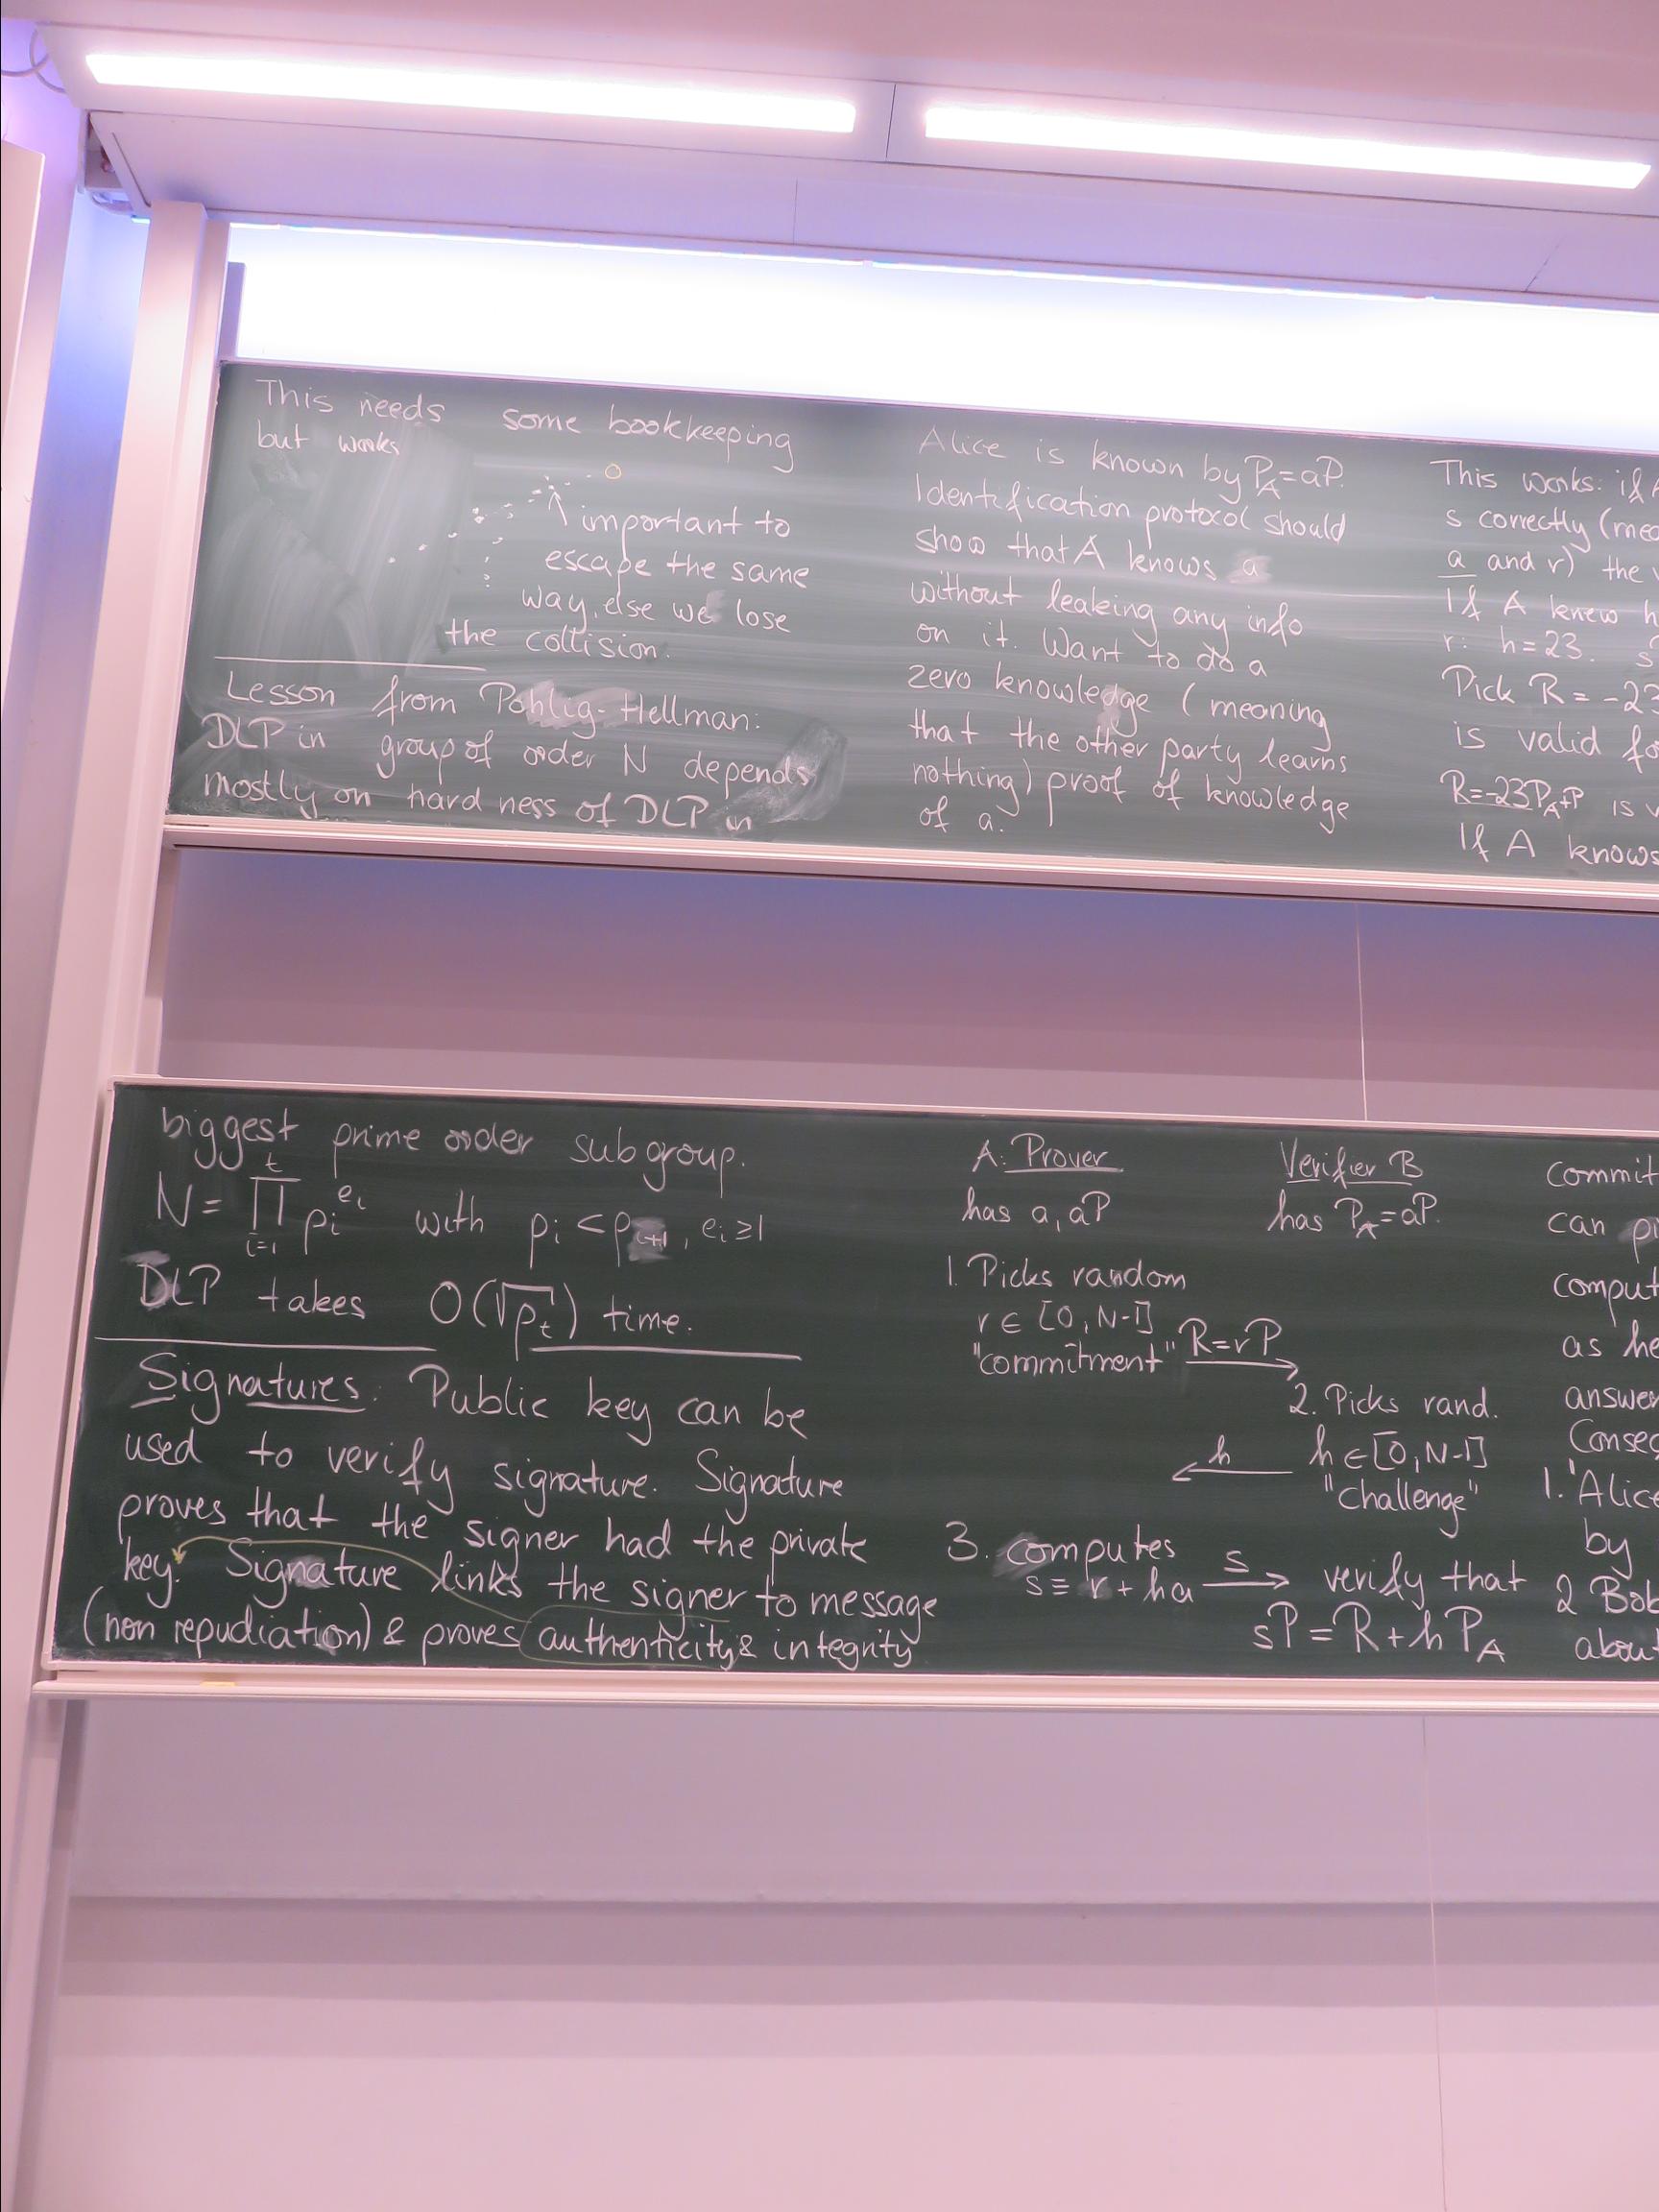 This needs some bookkeeping
but works
important to
escape the same
way, else we lose
the collision.
Lesson from Pohlig-Hellman:
DLP in group of order N depends
mostly on hardness of DLP in
biggest prime order subgroup.
N = ∏_{i=1}^{t} p_i^{e_i} with p_i < p_{i+1}, e_i ≥ 1
DLP takes O(√p_t) time.
Signatures. Public key can be
used to verify signature. Signature
proves that the signer had the private
key. Signature links the signer to message
(non repudiation) & proves authenticity & integrity
Alice is known by P_A = aP.
Identification protocol should
show that A knows a
without leaking any info
on it. Want to do a
zero knowledge (meaning
that the other party learns
nothing) proof of knowledge
of a.
A: Prover
has a, aP
Verifier B
has P_A = aP.
1. Picks random
r ∈ [0, N-1]
"commitment" R = rP
2. Picks rand.
h h ∈ [0, N-1]
"challenge"
3. computes
s ≡ r + ha s verify that
sP = R + hP_A
This works: if A
s correctly (mea
a and r) the
If A knew h
r: h = 23. s
Pick R = -23
is valid fo
R = -23P_A + P is v
If A knows
commit
can pi
comput
as he
answer
Conseq
1. Alice
by
2 Bob
about